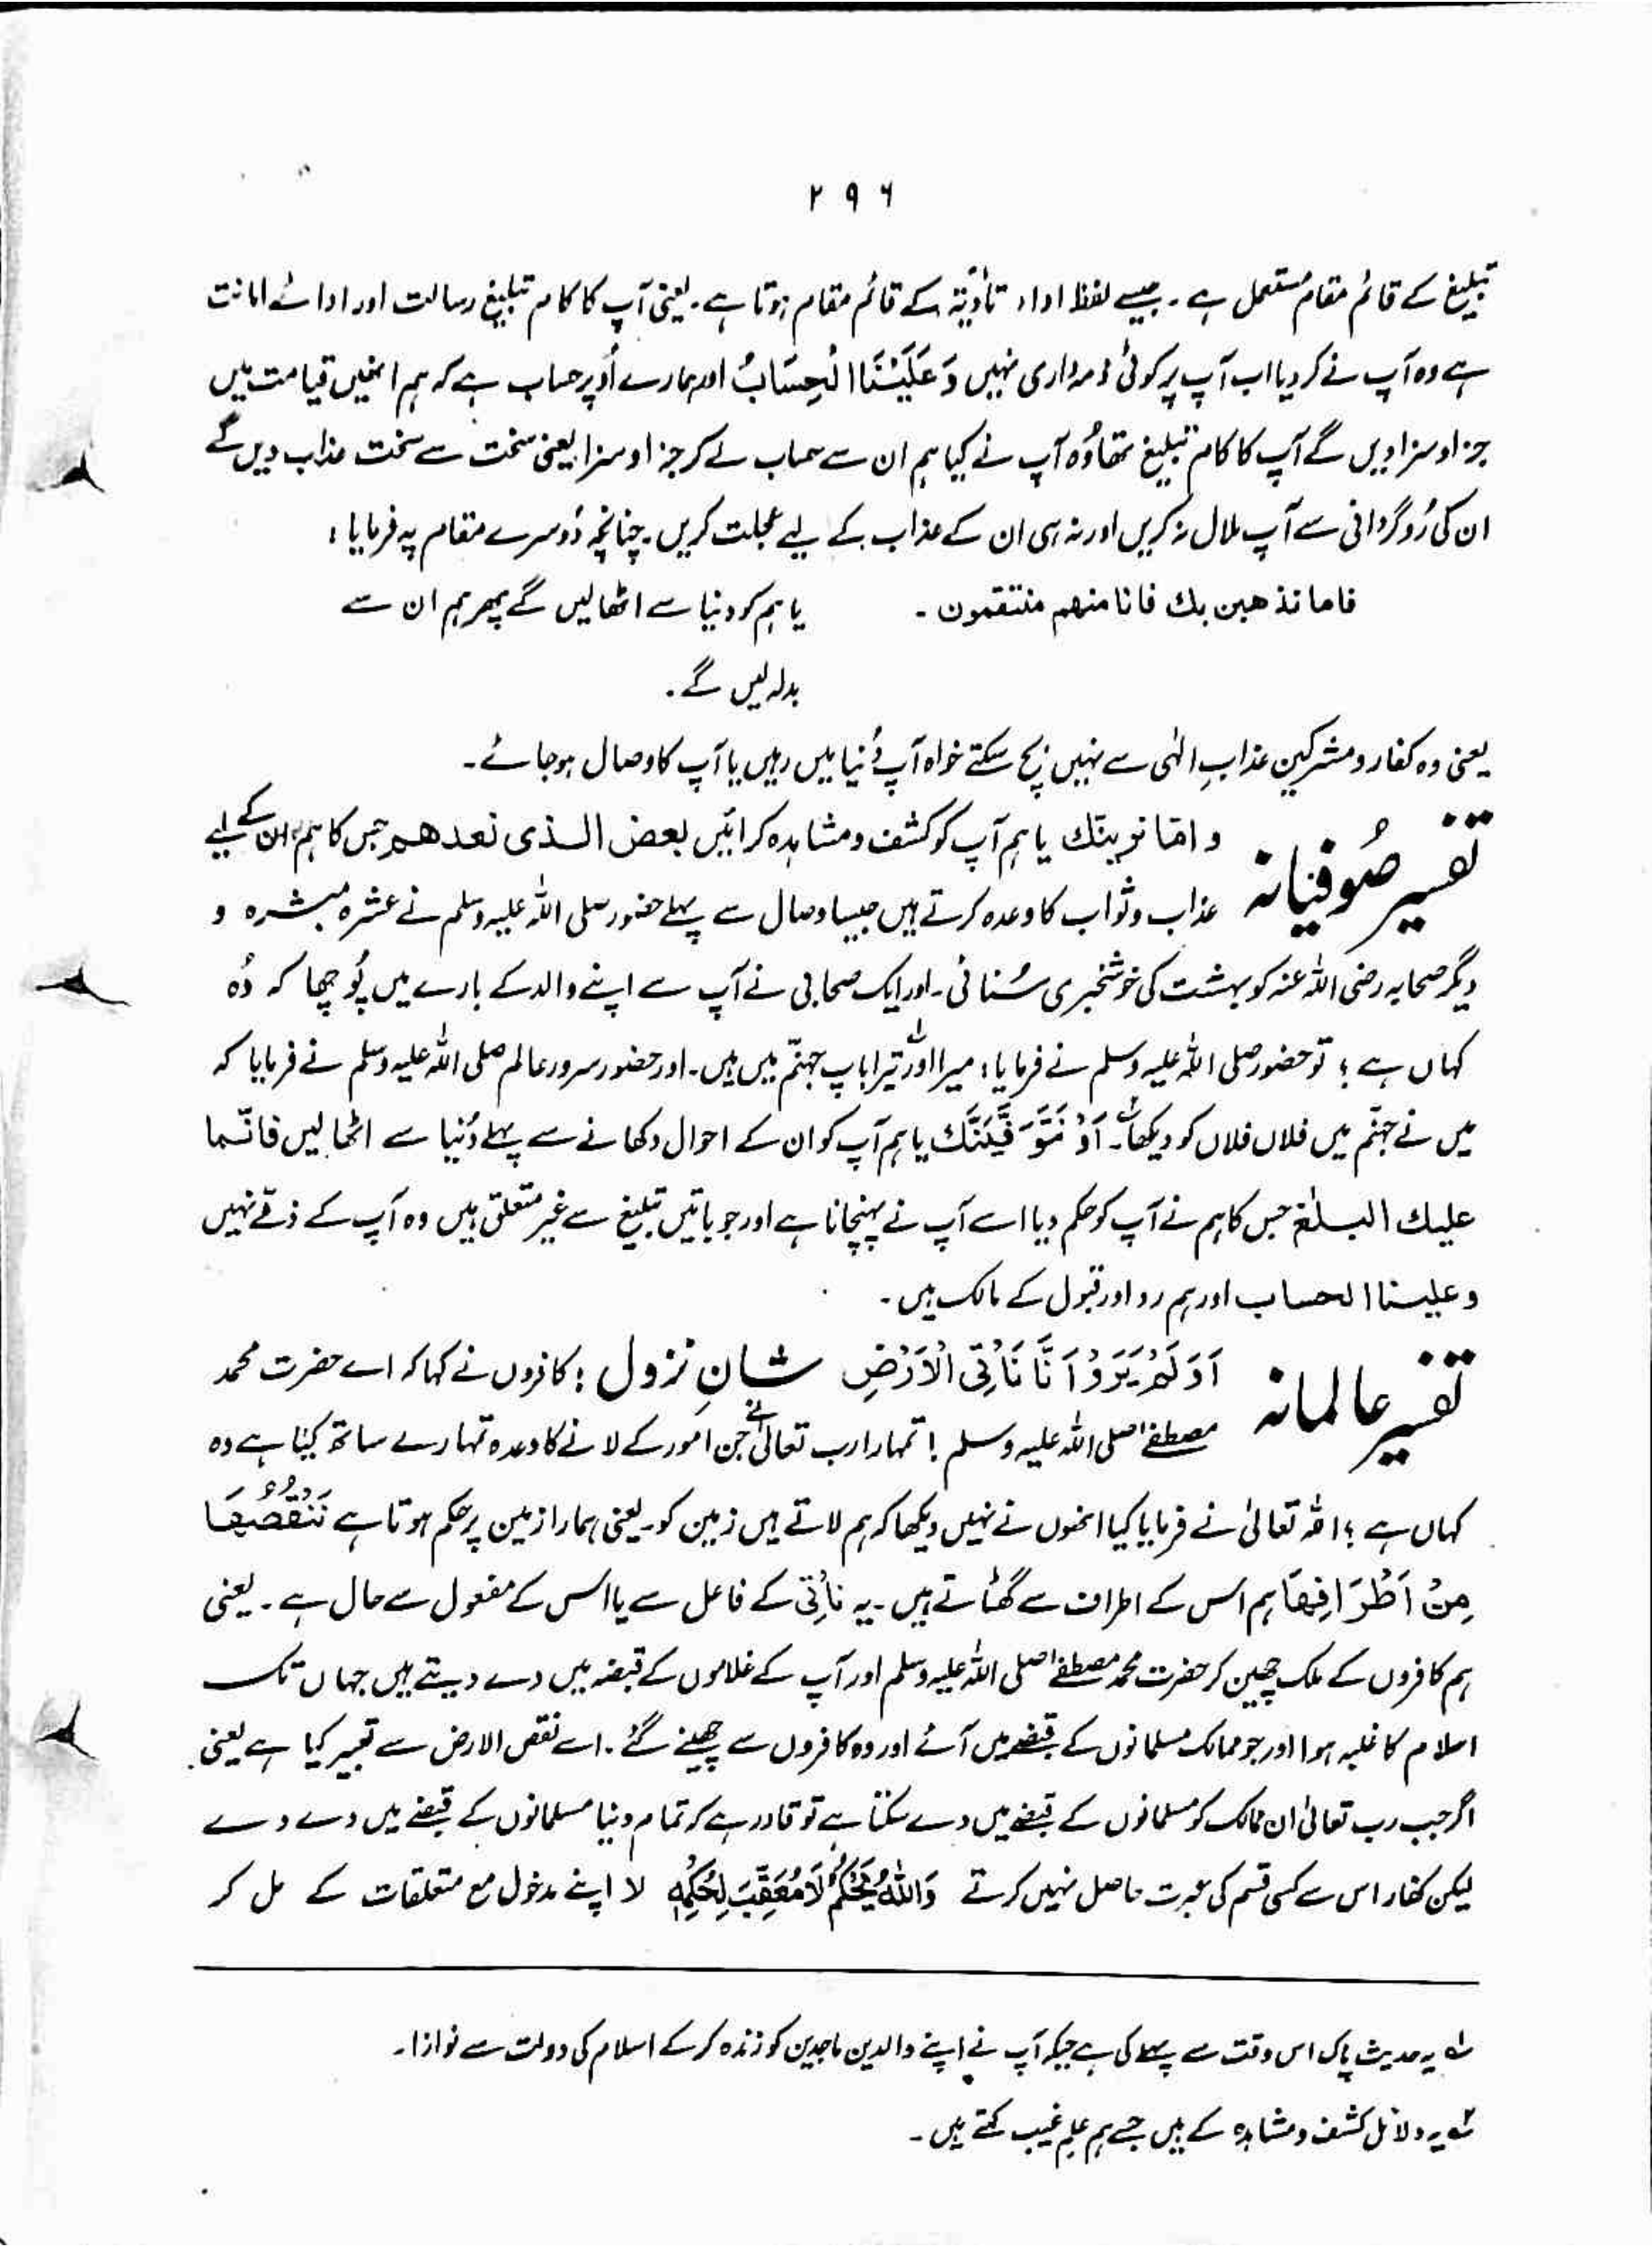 ۲۹۶
تبلیغ کے قائم مقام مستعمل ہے۔ جیسے لفظ اداء تأدیۃ کے قائم مقام ہوتا ہے۔ یعنی آپ کا کام تبلیغ رسالت اور ادائے امانت
ہے وہ آپ نے کر دیا اب آپ پر کوئی ذمہ داری نہیں وَعَلَیْنَا الْحِسَابُ اور ہمارے اُوپر حساب ہے کہ ہم انھیں قیامت میں
جزا و سزا دیں گے آپ کا کام تبلیغ تھا وُہ آپ نے کیا ہم ان سے حساب لے کر جزا و سزا یعنی سخت سے سخت عذاب دیں گے
ان کی رُوگردانی سے آپ ملال نہ کریں اور نہ ہی ان کے عذاب کے لیے عجلت کریں۔ چنانچہ دُوسرے مقام پہ فرمایا :
فاما نذهبن بك فانا منهم منتقمون ۔ یا ہم کو دنیا سے اٹھا لیں گے پھر ہم ان سے
بدلہ لیں گے۔
یعنی وہ کفار و مشرکین عذابِ الٰہی سے نہیں بچ سکتے خواہ آپ دُنیا میں رہیں یا آپ کا وصال ہو جائے۔
تفسیر صُوفیانہ و امّا نرینّك یا ہم آپ کو کشف و مشاہدہ کرائیں بعض الذی نعدهم جس کا ہم ان کے لیے
عذاب و ثواب کا وعدہ کرتے ہیں جیسا وصال سے پہلے حضور صلی اللہ علیہ وسلم نے عشرہ مبشرہ و
دیگر صحابہ رضی اللہ عنہ کو بہشت کی خوشخبری سُنائی۔ اور ایک صحابی نے آپ سے اپنے والد کے بارے میں پُوچھا کہ وُہ
کہاں ہے ؟ تو حضور صلی اللہ علیہ وسلم نے فرمایا: میرا اور تیرا باپ جہنّم میں ہیں۔ اور حضور سرور عالم صلی اللہ علیہ وسلم نے فرمایا کہ
میں نے جہنّم میں فلاں فلاں کو دیکھا۔ اَوْ نَتَوَفَّیَنَّكَ یا ہم آپ کو ان کے احوال دکھانے سے پہلے دُنیا سے اٹھا لیں فانّما
علیك البلٰغ جس کا ہم نے آپ کو حکم دیا اسے آپ نے پہنچانا ہے اور جو باتیں تبلیغ سے غیر متعلق ہیں وہ آپ کے ذمّے نہیں
و علینا الحساب اور ہم رد اور قبول کے مالک ہیں۔
تفسیر عالمانہ اَوَلَمْ یَرَوْا اَنَّا نَاْتِی الْاَرْضَ شانِ نزول : کافروں نے کہا کہ اے حضرت محمد
مصطفےٰ صلی اللہ علیہ وسلم ! تمہارا رب تعالیٰ نے جن امور کے لانے کا وعدہ تمہارے ساتھ کیا ہے وہ
کہاں ہے ؟ اللہ تعالیٰ نے فرمایا کیا انھوں نے نہیں دیکھا کہ ہم لاتے ہیں زمین کو۔ یعنی ہمارا زمین پر حکم ہوتا ہے نَنْقُصُهَا
مِنْ اَطْرَافِهَا ہم اس کے اطراف سے گھٹاتے ہیں۔ یہ نأتی کے فاعل سے یا اس کے مفعول سے حال ہے۔ یعنی
ہم کافروں کے ملک چھین کر حضرت محمد مصطفےٰ صلی اللہ علیہ وسلم اور آپ کے غلاموں کے قبضہ میں دے دیتے ہیں جہاں تک
اسلام کا غلبہ ہوا اور جو ممالک مسلمانوں کے قبضے میں آئے اور وہ کافروں سے چھینے گئے۔ اسے نقص الارض سے تعبیر کیا ہے یعنی
اگر جب رب تعالیٰ ان ممالک کو مسلمانوں کے قبضے میں دے سکتا ہے تو قادر ہے کہ تمام دنیا مسلمانوں کے قبضے میں دے دے
لیکن کفار اس سے کسی قسم کی عبرت حاصل نہیں کرتے وَاللّٰهُ یَحْكُمُ لَا مُعَقِّبَ لِحُكْمِهٖ لا اپنے مدخول مع متعلقات کے مل کر
لہ یہ حدیث پاک اس وقت سے پہلے کی ہے جبکہ آپ نے اپنے والدین ماجدین کو زندہ کر کے اسلام کی دولت سے نوازا۔
۲ یہ دلائل کشف و مشاہدہ کے ہیں جسے ہم علم غیب کہتے ہیں۔